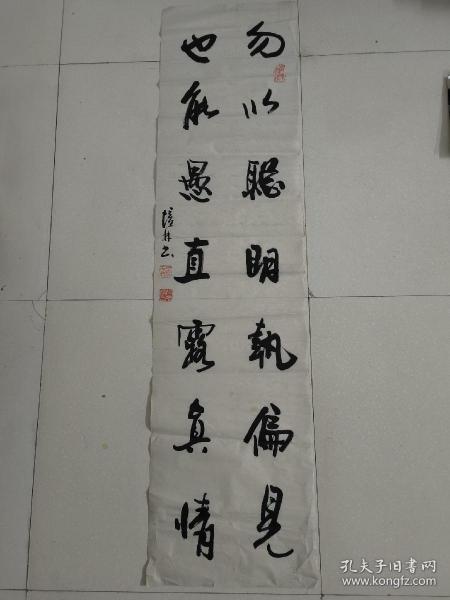 勿以聪明執偏見
也能愚直露真情
培林书
孔夫子旧书网
www.kongfz.com